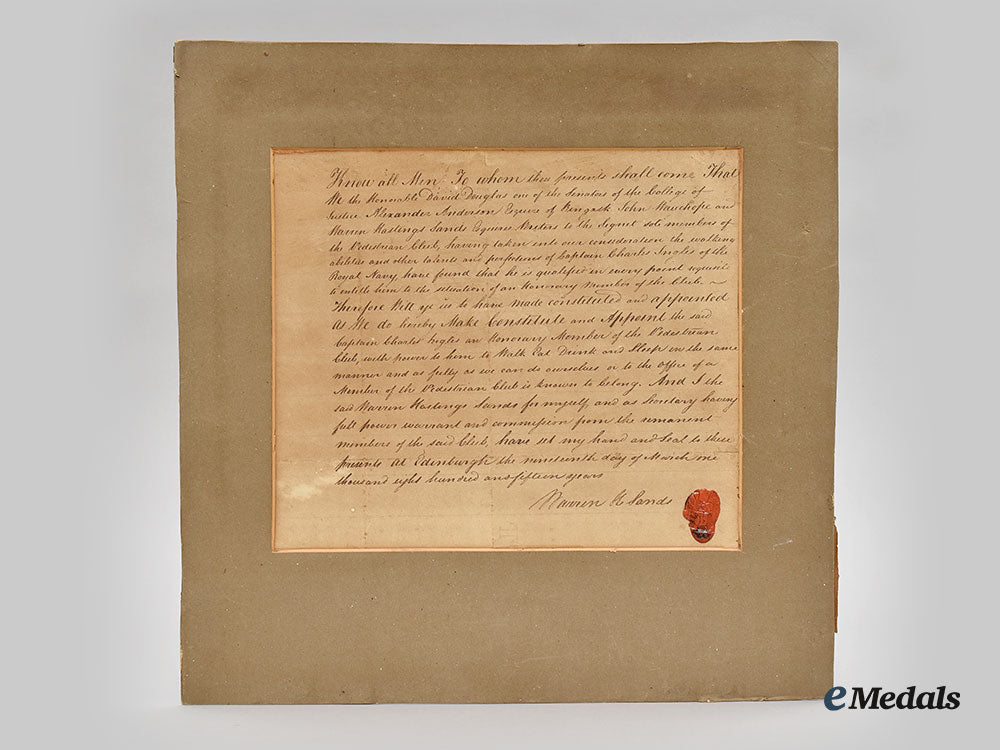 Know all Men To whom these presents shall come That
We the Honourable David Douglas one of the Senators of the College of
Justice Alexander Anderson Esquire of Kingask John Wauchope and
Warren Hastings Sands Esquires Writers to the Signet sole members of
the Pedestrian Club, having taken into our consideration the walking
abilities and other talents and propensions of Captain Charles Ingles of the
Royal Navy, have found that he is qualified in every point requisite
to entitle him to the situation of an Honorary Member of the Club.
Therefore Witt ye us to have made constituted and appointed
As We do hereby Make Constitute and Appoint the said
Captain Charles Ingles an Honorary Member of the Pedestrian
Club, with power to him to Walk Eat Drink and Sleep in the same
manner and as fully as we can do ourselves or to the office of a
Member of the Pedestrian Club is known to belong. And I the
said Warren Hastings Sands for myself, and as Secretary having
full power warrant and commission from the remanent
members of the said Club, have set my hand and Seal to these
presents At Edinburgh the nineteenth day of March one
thousand eight hundred and fifteen years
Warren H Sands
eMedals